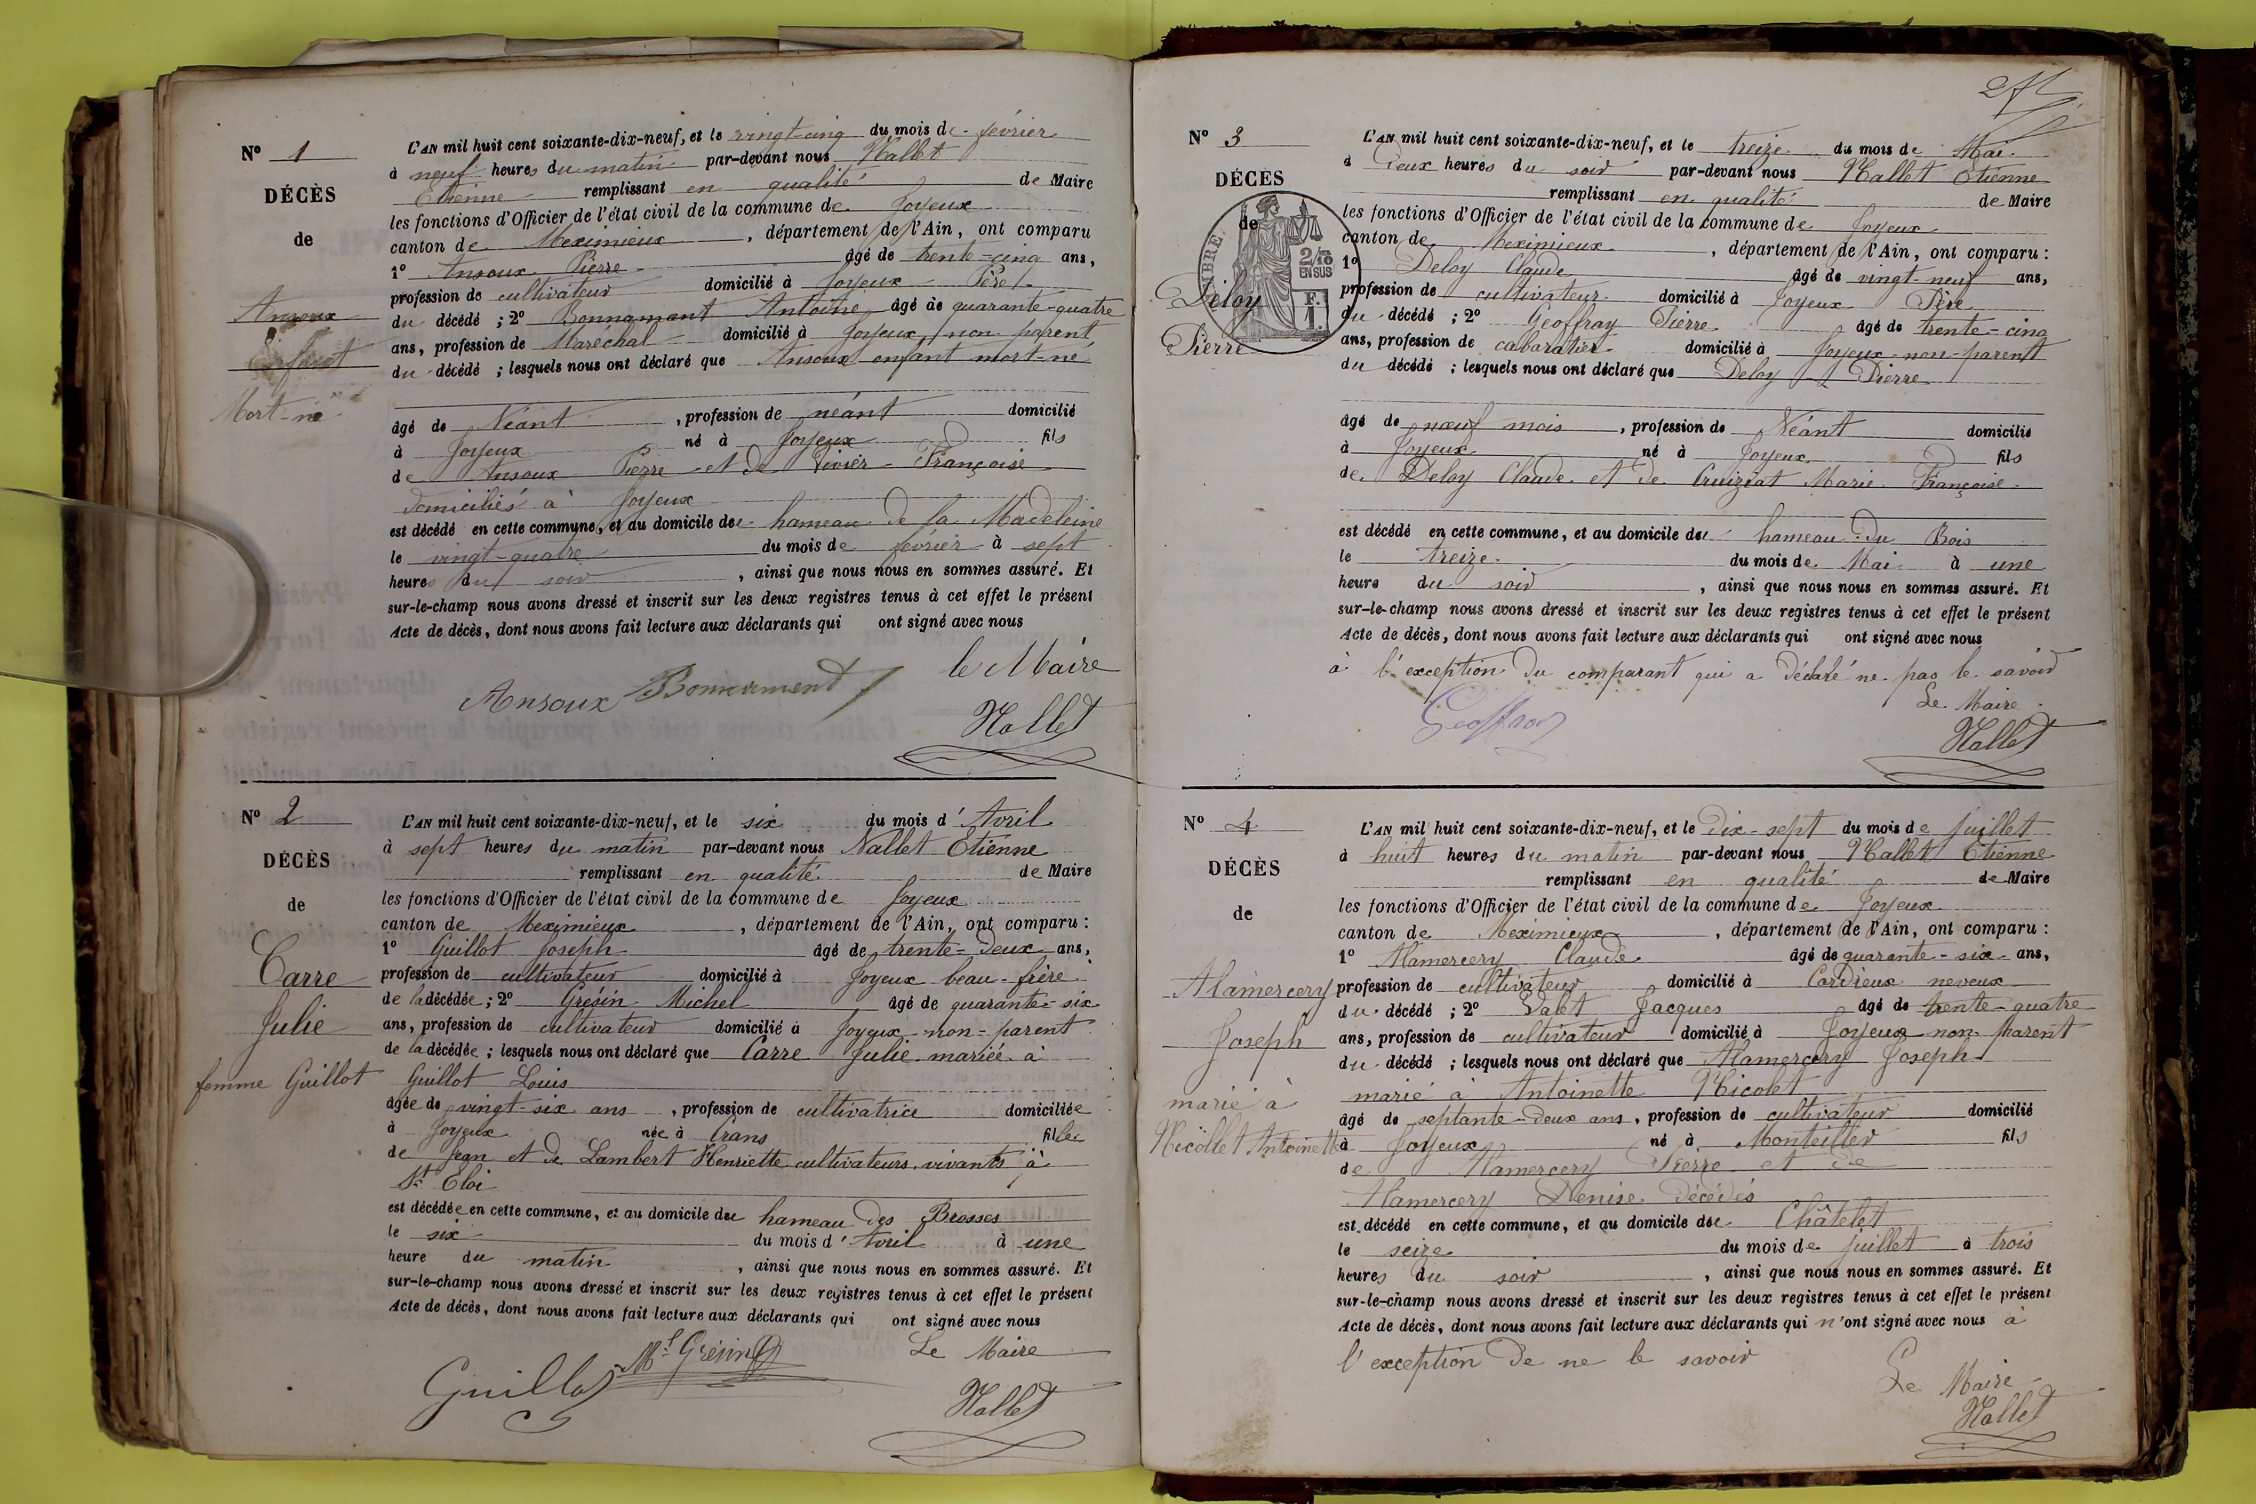 Nº 1
DÉCÈS
de
Ansoux
Enfant
Mort-né
L'AN mil huit cent soixante-dix-neuf, et le vingt-cinq du mois de février
à neuf heures du matin par-devant nous Nallet
Etienne remplissant en qualité de Maire
les fonctions d'Officier de l'état civil de la commune de Joyeux
canton de Meximieux, département de l'Ain, ont comparu
1º Ansoux Pierre âgé de trente-cinq ans,
profession de cultivateur domicilié à Joyeux Père
du décédé ; 2º Bonnamant Antoine âgé de quarante-quatre
ans, profession de Maréchal domicilié à Joyeux non parent
du décédé ; lesquels nous ont déclaré que Ansoux enfant mort-né
âgé de Néant, profession de néant domicilié
à Joyeux né à Joyeux fils
de Ansoux Pierre et de Vivier Françoise
domiciliés à Joyeux
est décédé en cette commune, et au domicile du hameau de la Madeleine
le vingt-quatre du mois de février à sept
heures du soir, ainsi que nous nous en sommes assuré. Et
sur-le-champ nous avons dressé et inscrit sur les deux registres tenus à cet effet le présent
Acte de décès, dont nous avons fait lecture aux déclarants qui ont signé avec nous
le Maire
Ansoux Bonnamant
Nallet
Nº 2
DÉCÈS
de
Carre
Julie
femme Guillot
L'AN mil huit cent soixante-dix-neuf, et le six du mois d'Avril
à sept heures du matin par-devant nous Nallet Etienne
remplissant en qualité de Maire
les fonctions d'Officier de l'état civil de la commune de Joyeux
canton de Meximieux, département de l'Ain, ont comparu :
1º Guillot Joseph âgé de trente-deux ans,
profession de cultivateur domicilié à Joyeux beau-frère
de la décédée ; 2º Grésin Michel âgé de quarante-six
ans, profession de cultivateur domicilié à Joyeux non-parent
de la décédée ; lesquels nous ont déclaré que Carre Julie mariée à
Guillot Louis
âgée de vingt-six ans, profession de cultivatrice domiciliée
à Joyeux née à Crans fille
de Jean et de Lambert Henriette cultivateurs vivants à
St Eloi
est décédée en cette commune, et au domicile du hameau des Brosses
le six du mois d'Avril à une
heure du matin, ainsi que nous nous en sommes assuré. Et
sur-le-champ nous avons dressé et inscrit sur les deux registres tenus à cet effet le présent
Acte de décès, dont nous avons fait lecture aux déclarants qui ont signé avec nous
Le Maire
Guillot Ml Grésin
Nallet
Nº 3
DÉCÈS
de
TIMBRE
2/10
EN SUS
F.
1.
Deloy
Pierre
L'AN mil huit cent soixante-dix-neuf, et le treize du mois de Mai
à Deux heures du soir par-devant nous Nallet Etienne
remplissant en qualité de Maire
les fonctions d'Officier de l'état civil de la commune de Joyeux
canton de Meximieux, département de l'Ain, ont comparu :
1º Deloy Claude âgé de vingt-neuf ans,
profession de cultivateur domicilié à Joyeux Père
du décédé ; 2º Geoffray Pierre âgé de trente-cinq
ans, profession de cabaratier domicilié à Joyeux non-parent
du décédé ; lesquels nous ont déclaré que Deloy Pierre
âgé de nœuf mois, profession de Néant domicilié
à Joyeux né à Joyeux fils
de Deloy Claude et de Cruiziat Marie Françoise
est décédé en cette commune, et au domicile du hameau du Bois
le treize du mois de Mai à une
heure du soir, ainsi que nous nous en sommes assuré. Et
sur-le-champ nous avons dressé et inscrit sur les deux registres tenus à cet effet le présent
Acte de décès, dont nous avons fait lecture aux déclarants qui ont signé avec nous
à l'exception du comparant qui a déclaré ne pas le savoir
Le Maire
Geoffray
Nallet
Nº 4
DÉCÈS
de
Alamercery
Joseph
marié à
Nicollet Antoinette
L'AN mil huit cent soixante-dix-neuf, et le Dix-sept du mois de juillet
à huit heures du matin par-devant nous Nallet Etienne
remplissant en qualité de Maire
les fonctions d'Officier de l'état civil de la commune de Joyeux
canton de Meximieux, département de l'Ain, ont comparu :
1º Alamercery Claude âgé de quarante-six ans,
profession de cultivateur domicilié à Cordieux neveux
du décédé ; 2º Jacques âgé de trente-quatre
ans, profession de cultivateur domicilié à Joyeux non parent
du décédé ; lesquels nous ont déclaré que Alamercery Joseph
marié à Antoinette Nicolet
âgé de septante-deux ans, profession de cultivateur domicilié
à Joyeux né à Montellier fils
de Alamercery Pierre et de
Alamercery Denise décédés
est décédé en cette commune, et au domicile du Châtelet
le seize du mois de juillet à trois
heures du soir, ainsi que nous nous en sommes assuré. Et
sur-le-champ nous avons dressé et inscrit sur les deux registres tenus à cet effet le présent
Acte de décès, dont nous avons fait lecture aux déclarants qui n'ont signé avec nous à
l'exception de ne le savoir
Le Maire
Nallet